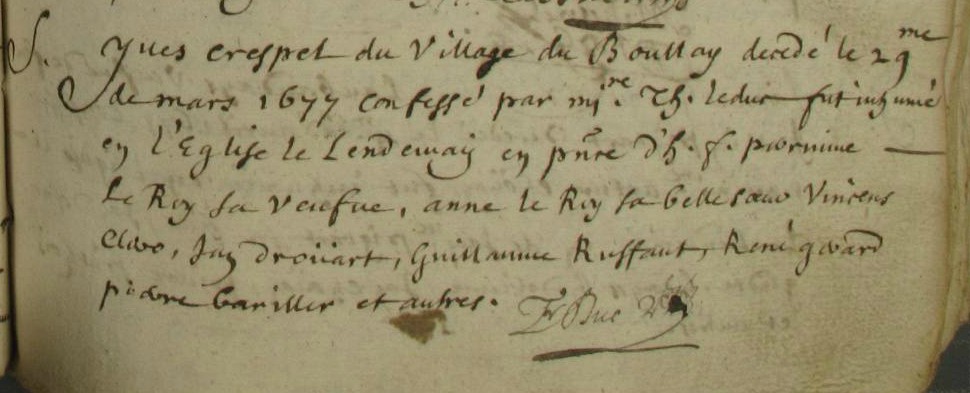 S. Yves crespel du village du Boullay decedé le 29me
de mars 1677 confessé par mire. Th. leduc fut inhumé
en l'Eglise le Lendemain en pñce d'h. f. perrinne
Le Roy sa veufue, anne le Roy sa belle soeur Vincens
Clero, Jan drouart, Guillaume Ruffaut, René gerard
pierre bariller et autres.